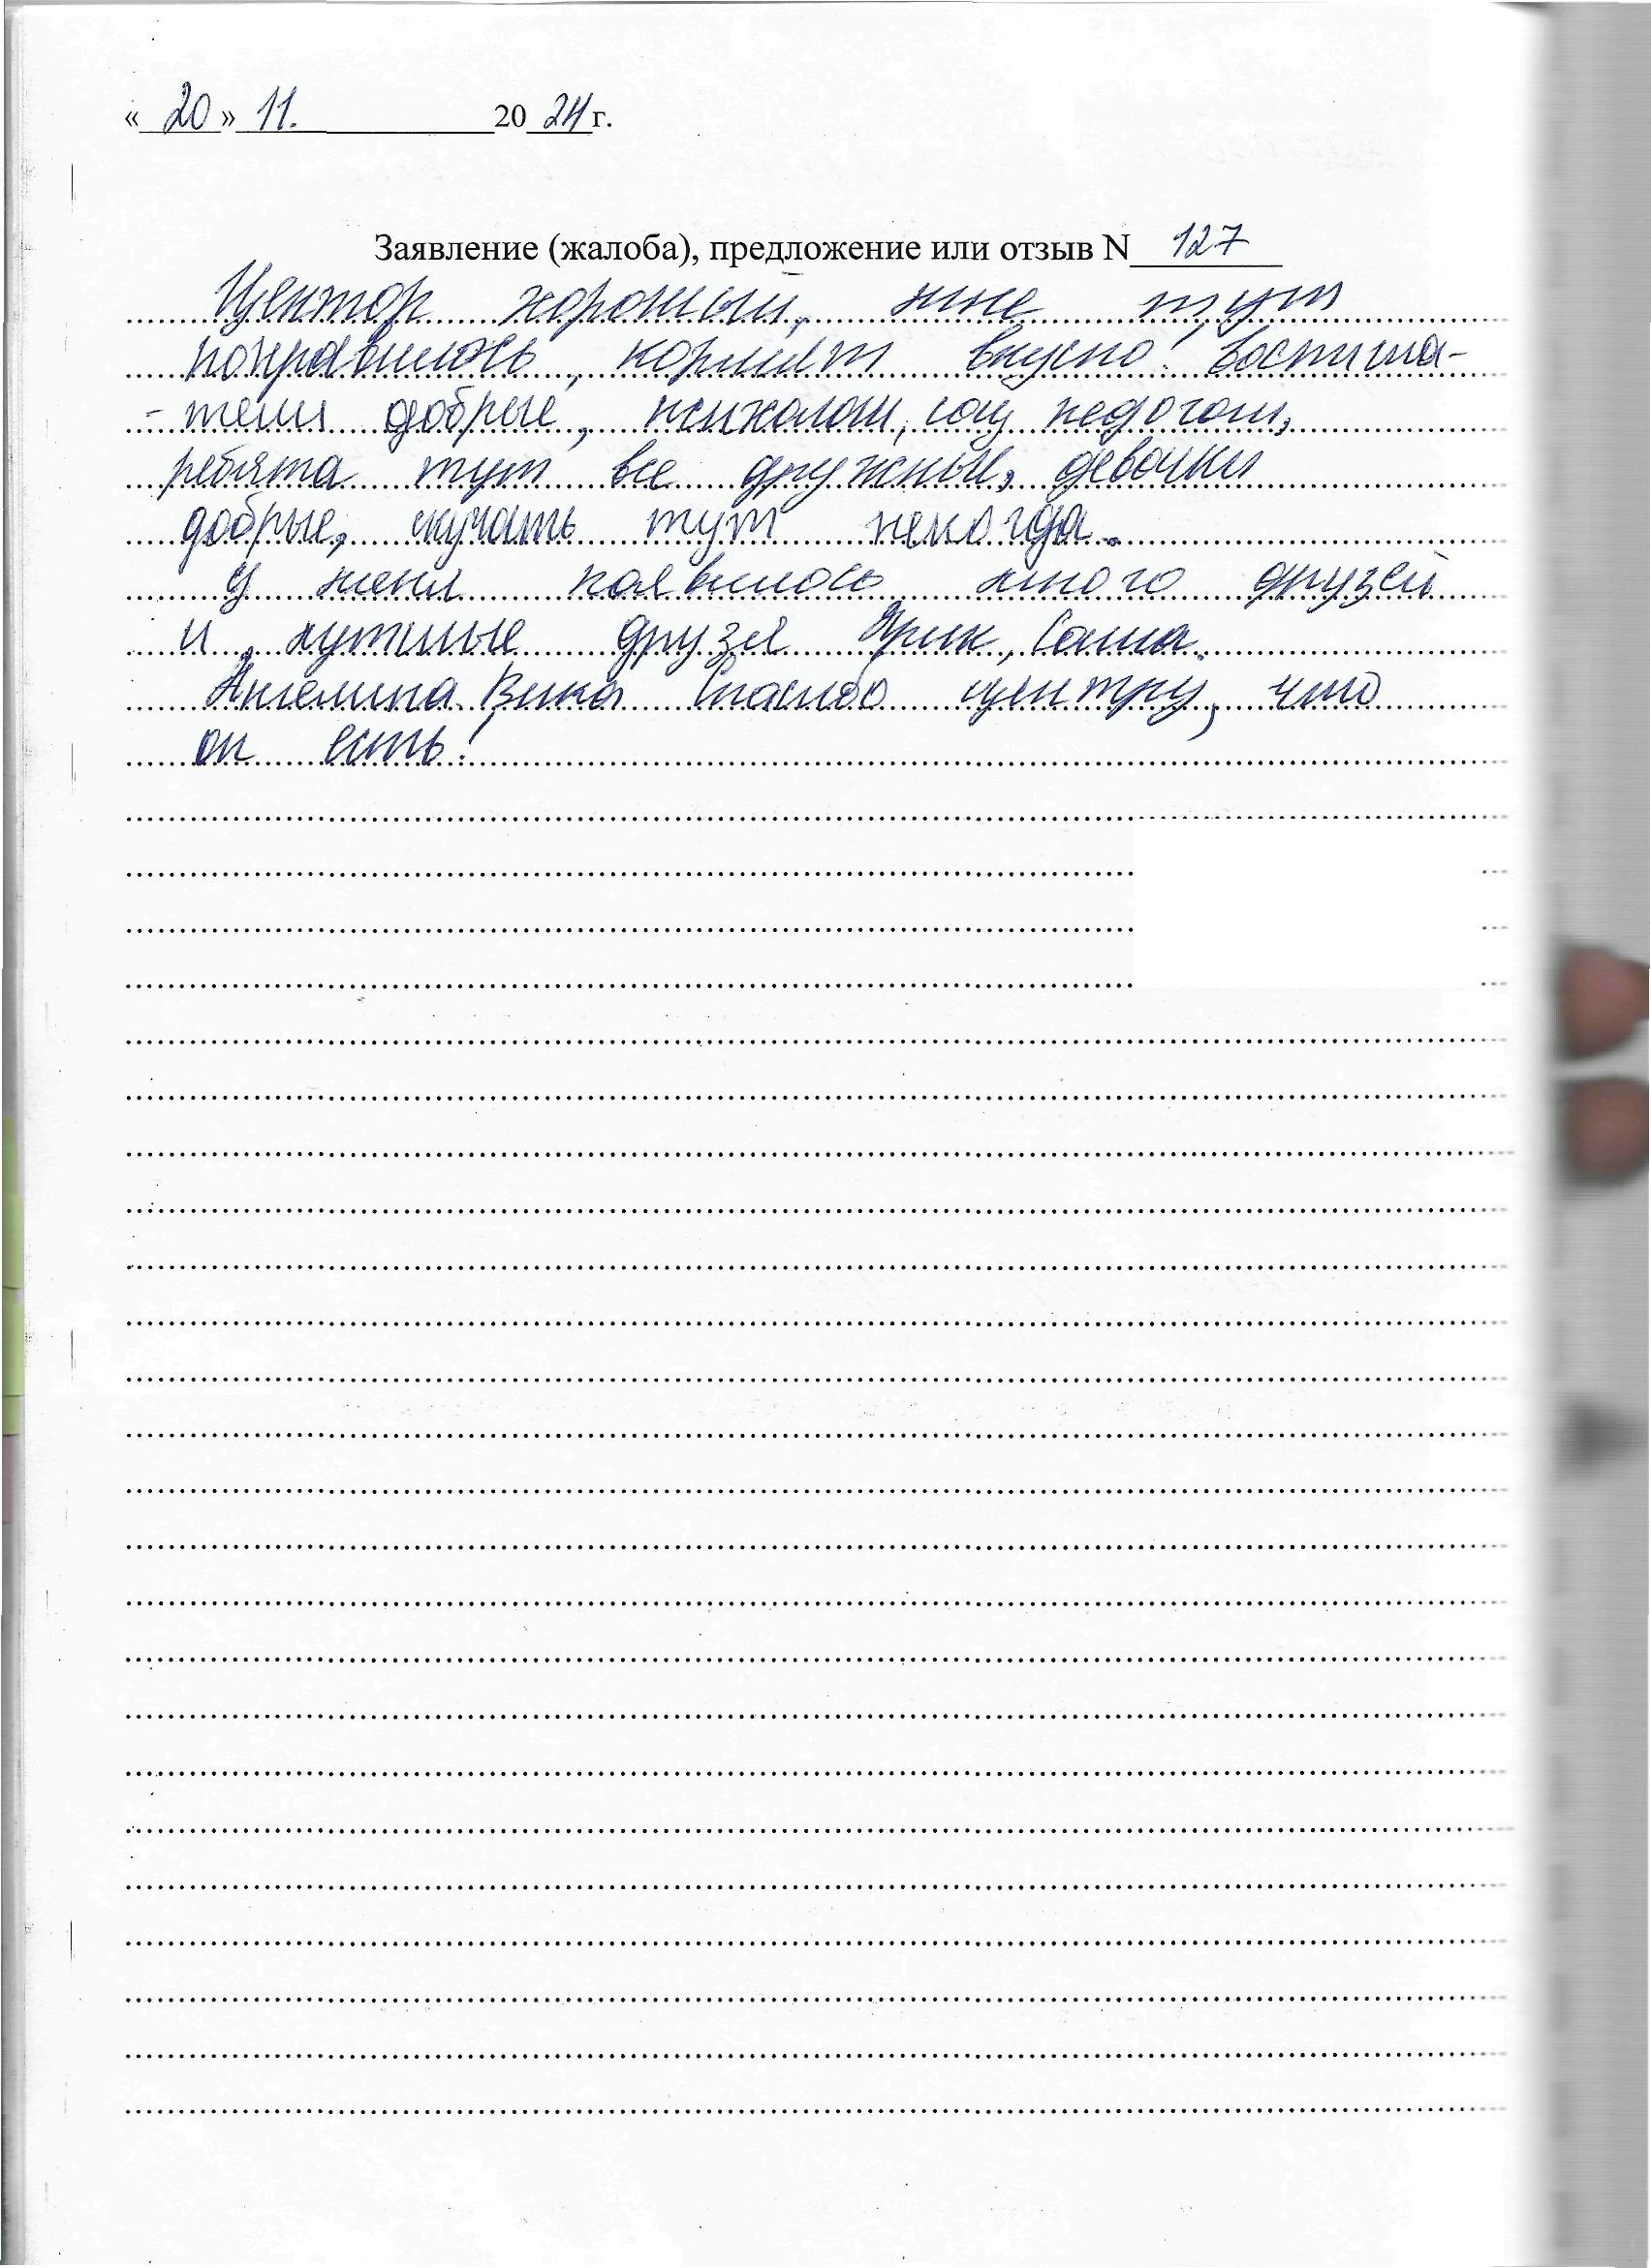 «20» 11. 2024г.
Заявление (жалоба), предложение или отзыв N 127
Центор хороший, мне тут
понравилось, кормят вкусно! воспита-
-тели добрые, психологи, соц педогоги,
ребята тут все дружный, девочки
добрые, скучать тут некогда.
У меня появилось много друзей
и лутшые друзя Ярик, Саша.
Ангелина. Вика Спасибо центру, что
он есть!